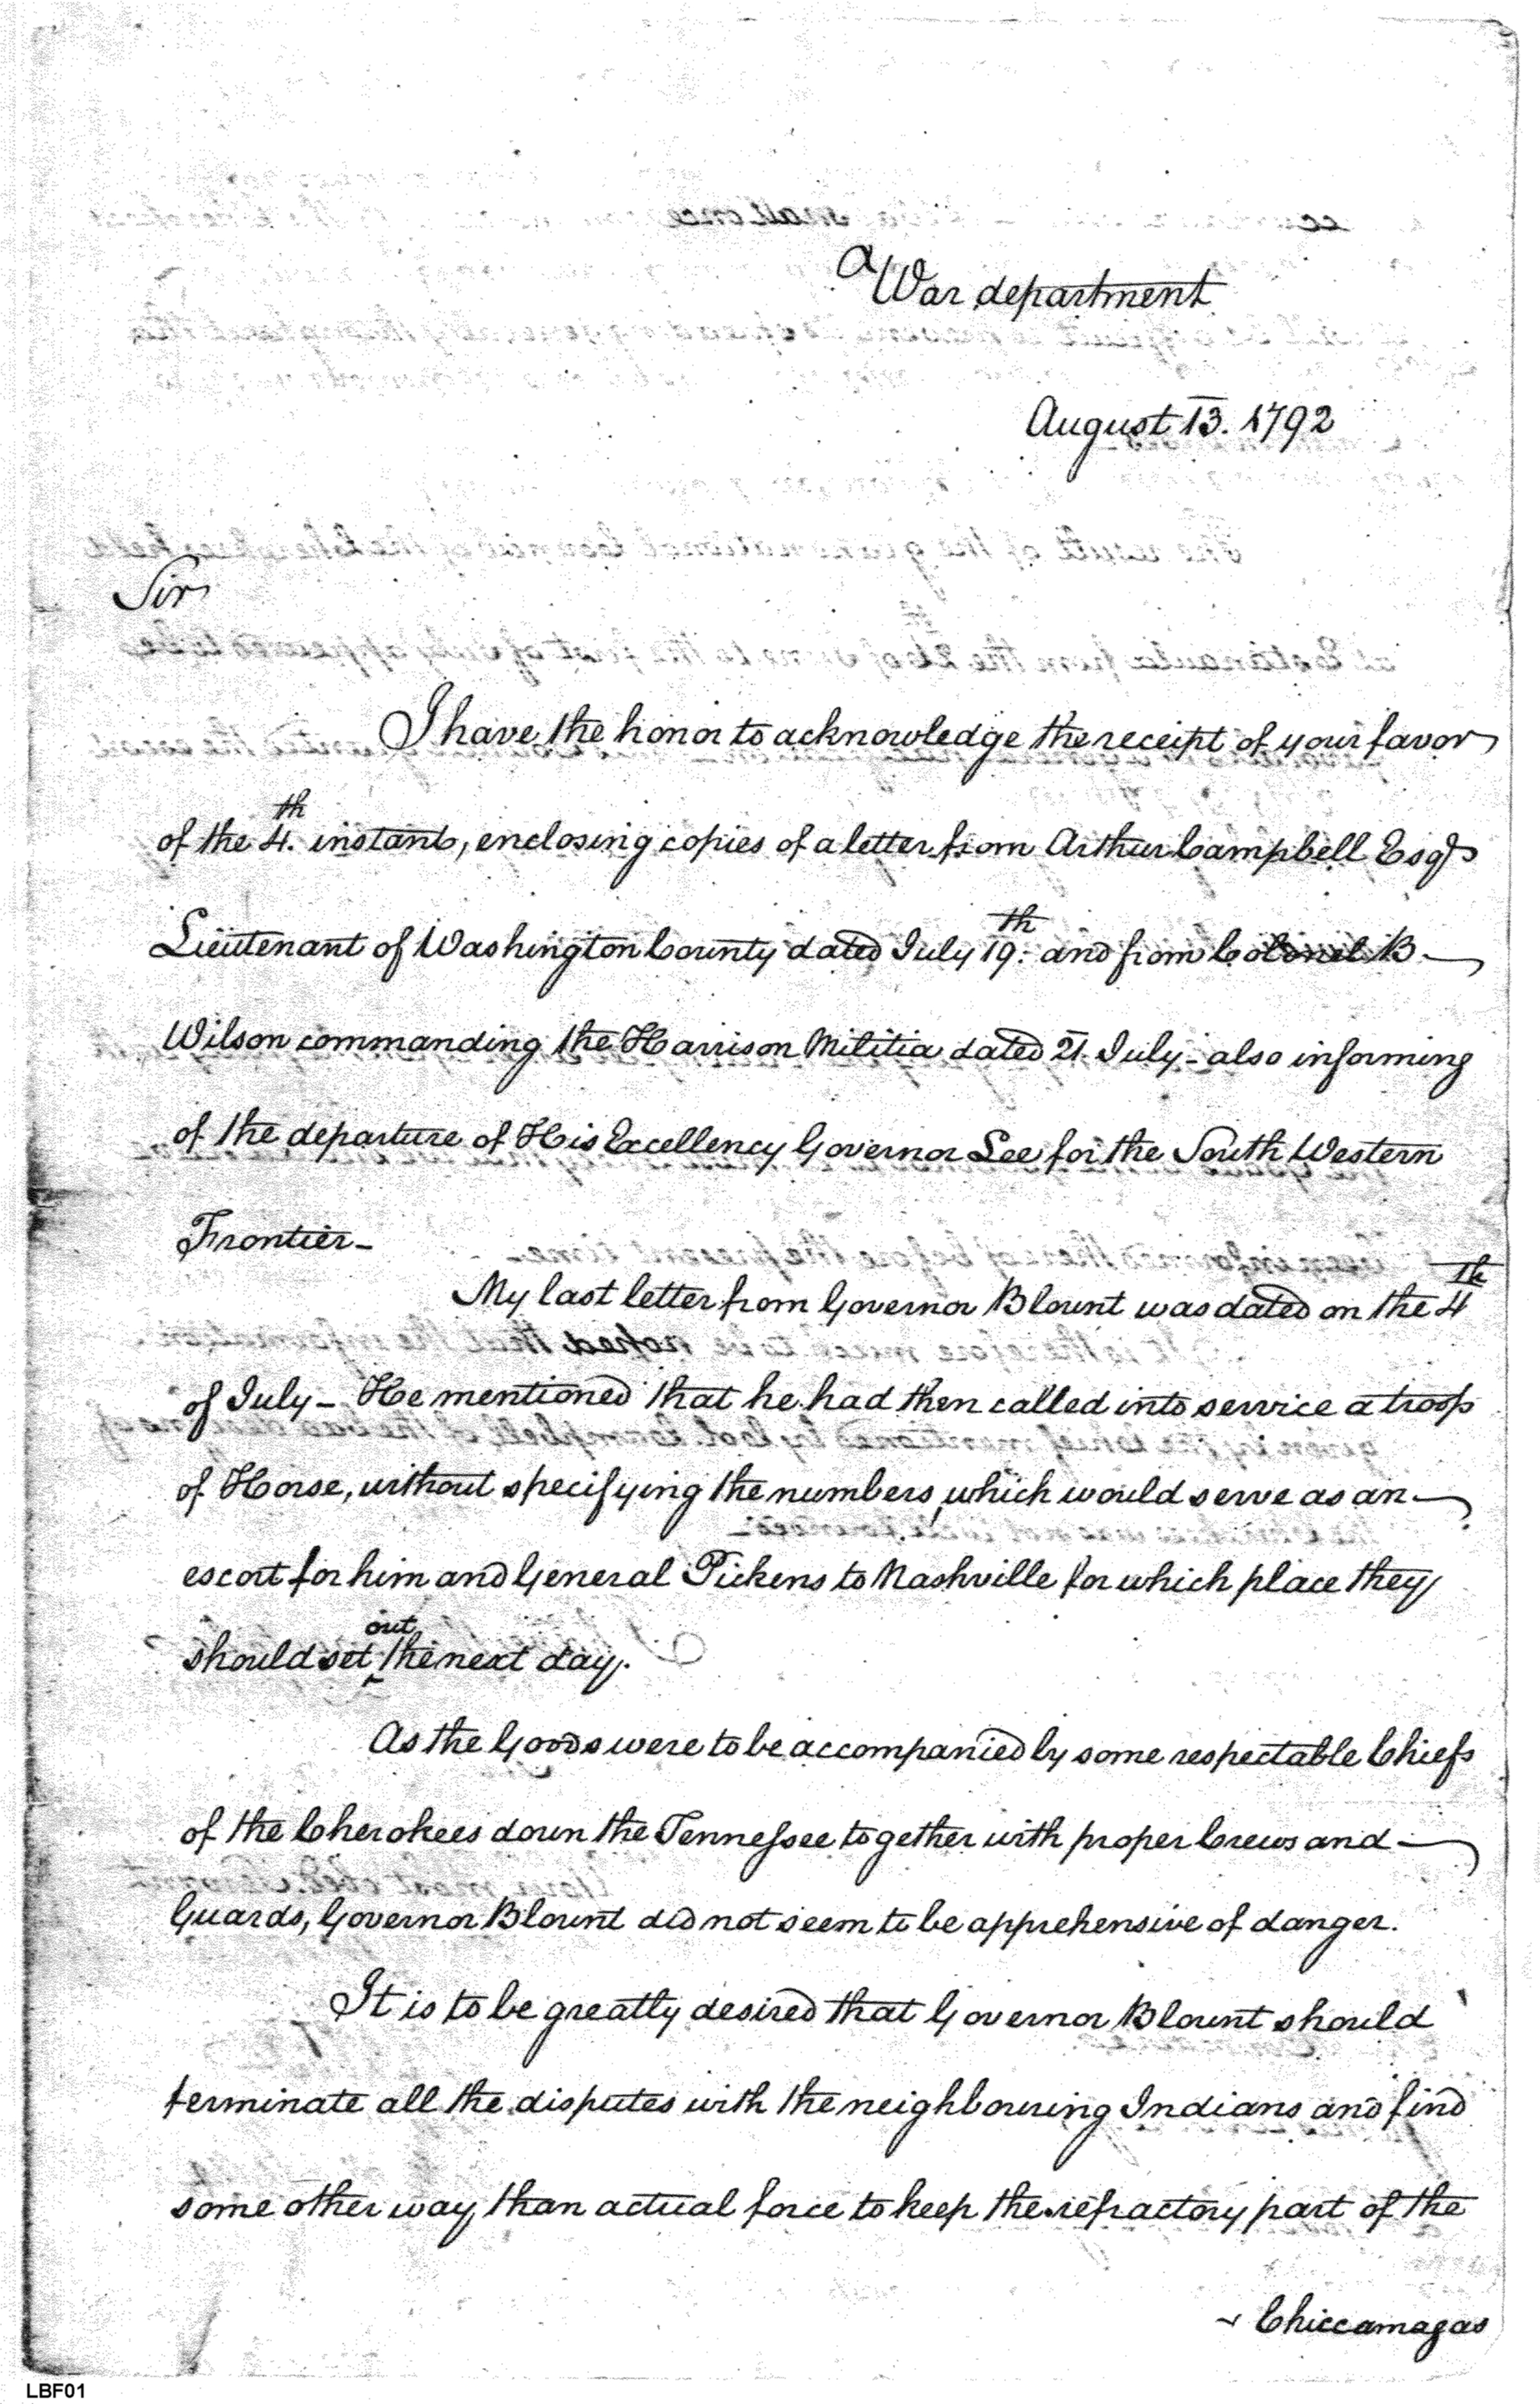 a War department
August 13. 1792
Sir
I have the honor to acknowledge the receipt of your favor
of the 4th. instant, enclosing copies of a letter from Arthur Campbell Esqr
Lieutenant of Washington County dated July 19th. and from Colonel B.
Wilson commanding the Harrison Militia dated 21. July - also informing
of the departure of His Excellency Governor Lee for the South Western
Frontier -
My last letter from Governor Blount was dated on the 4th
of July - He mentioned that he had then called into service a troop
of Horse, without specifying the numbers, which would serve as an
escort for him and General Pickens to Nashville for which place they
should set out the next day.
As the Goods were to be accompanied by some respectable Chiefs
of the Cherokees down the Tennessee together with proper Crews and
Guards, Governor Blount did not seem to be apprehensive of danger.
It is to be greatly desired that Governor Blount should
terminate all the disputes with the neighbouring Indians and find
some other way than actual force to keep the refractory part of the
Chiccamagas
LBF01